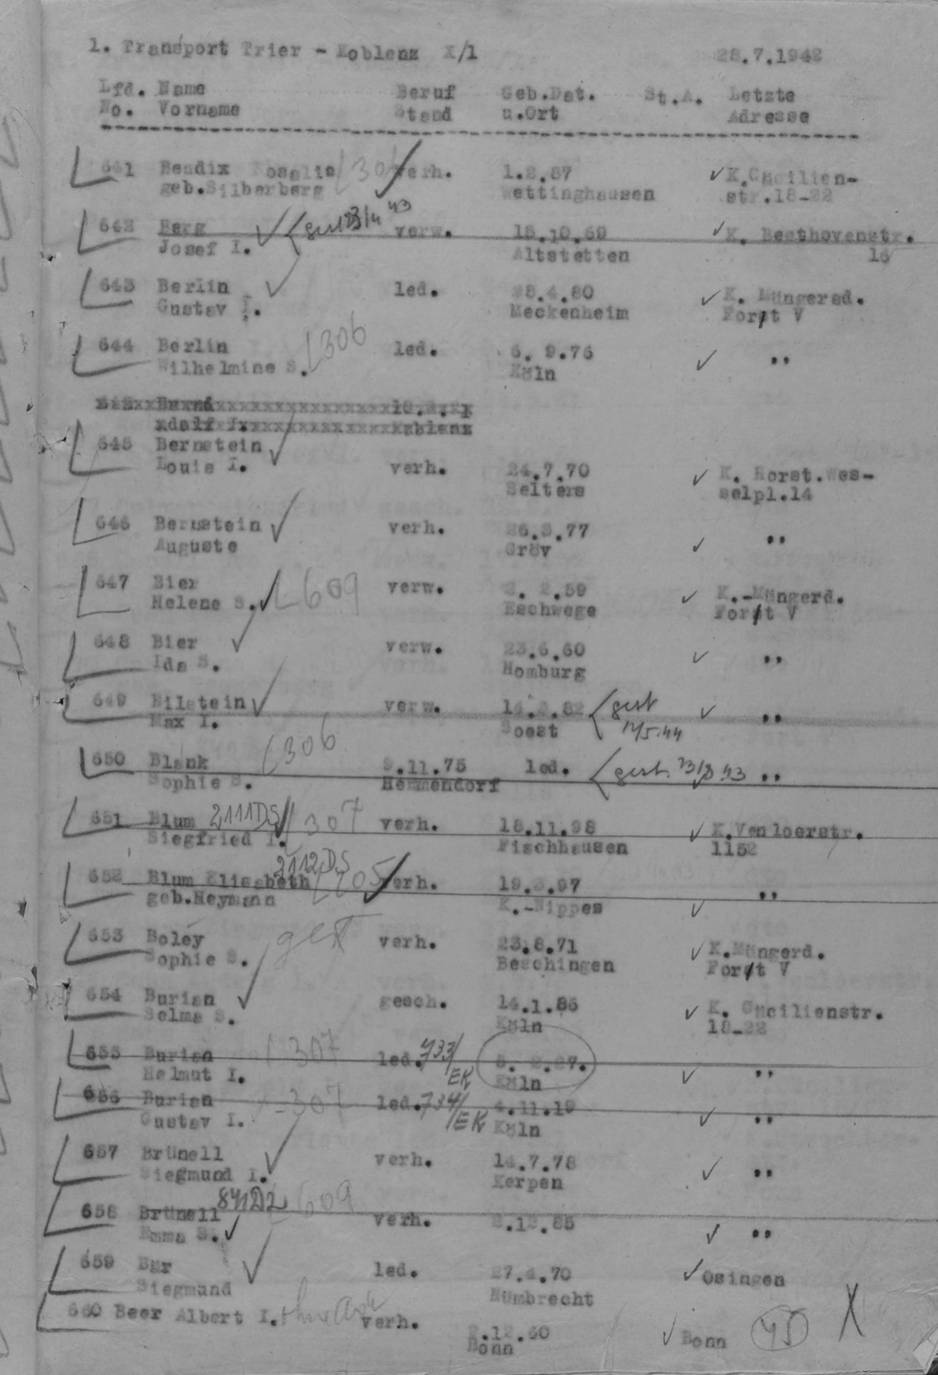 1. Transport Trier - Koblenz X/1 28.7.1942
Lfd. Name Beruf Geb.Dat. St.A. Letzte
No. Vorname Stand u.Ort Adresse
641 Bendix Rosalie verh. 1.2.87 K.Cäcilien-
geb.Silberberg Wettinghausen str.18-22
642 Berg gest 23/4 43 verw. 15.10.69 K. Beethovenstr.
Josef I. Altstetten 16
643 Berlin led. 25.4.80 K. Müngersd.
Gustav I. Meckenheim Forst V
644 Berlin 306 led. 6. 9.76 ,,
Wilhelmine S. Köln
645 Bernstein
Louis I. verh. 24.7.70 K. Horst.Wes-
Selters selpl.14
646 Bernstein verh. 26.3.77 ,,
Auguste Gröv
647 Bier 609 verw. 2. 2.59 K.-Müngerd.
Helene S. Eschwege Forst V
648 Bier verw. 23.6.60 ,,
Ida S. Homburg
649 Bilstein verw. 14.2.82 gest ,,
Max I. Soest 12/5.44
650 Blank 306 9.11.75 led. gest. 23/8 43 ,,
Sophie S. Hemmendorf
651 Blum 2111DS 307 verh. 18.11.98 K.Venloerstr.
Siegfried I. Fischhausen 1152
2112DS
652 Blum Elisabeth 705 verh. 19.3.97 ,,
geb.Heymann K.-Nippes
653 Boley gest verh. 23.8.71 K.Müngerd.
Sophie S. Beschingen Forst V
654 Burian gesch. 14.1.86 K. Cäcilienstr.
Selma S. Köln 18-22
655 Burian 307 led. 733/EK 5. 2.27. ,,
Helmut I. Köln
656 Burian 307 led. 734/EK 4.11.19 ,,
Gustav I. Köln
657 Brünell verh. 14.7.78 ,,
Siegmund I. Kerpen
658 Brünell 841D2 609 verh. 2.12.85 ,,
Emma S.
659 Bär led. 27.4.70 Osingen
Siegmund Nümbrecht
660 Beer Albert I. verh. 2.12.60 Bonn 45 X
Bonn